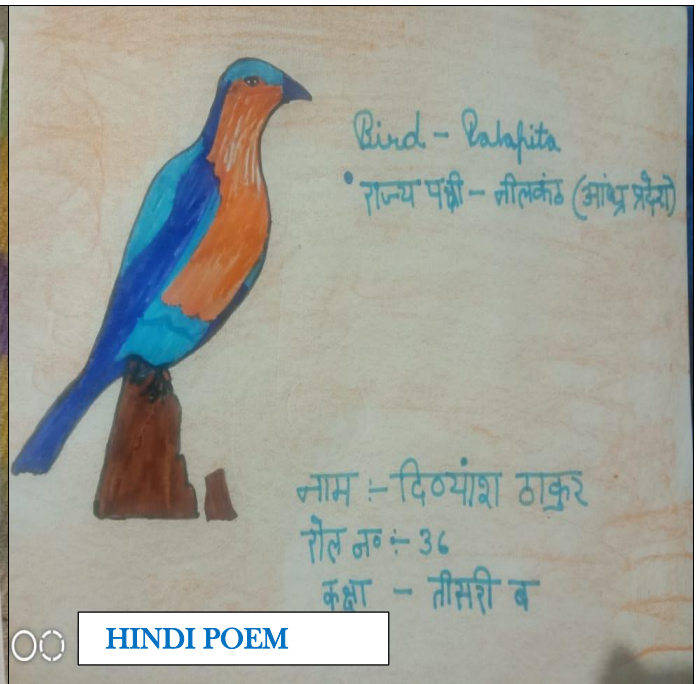 Bird - Palapita
• राज्य पक्षी - नीलकंठ (आंध्र प्रदेश)
नाम :- दिव्यांश ठाकुर
रोल न० :- 36
कक्षा - तीसरी ब
HINDI POEM